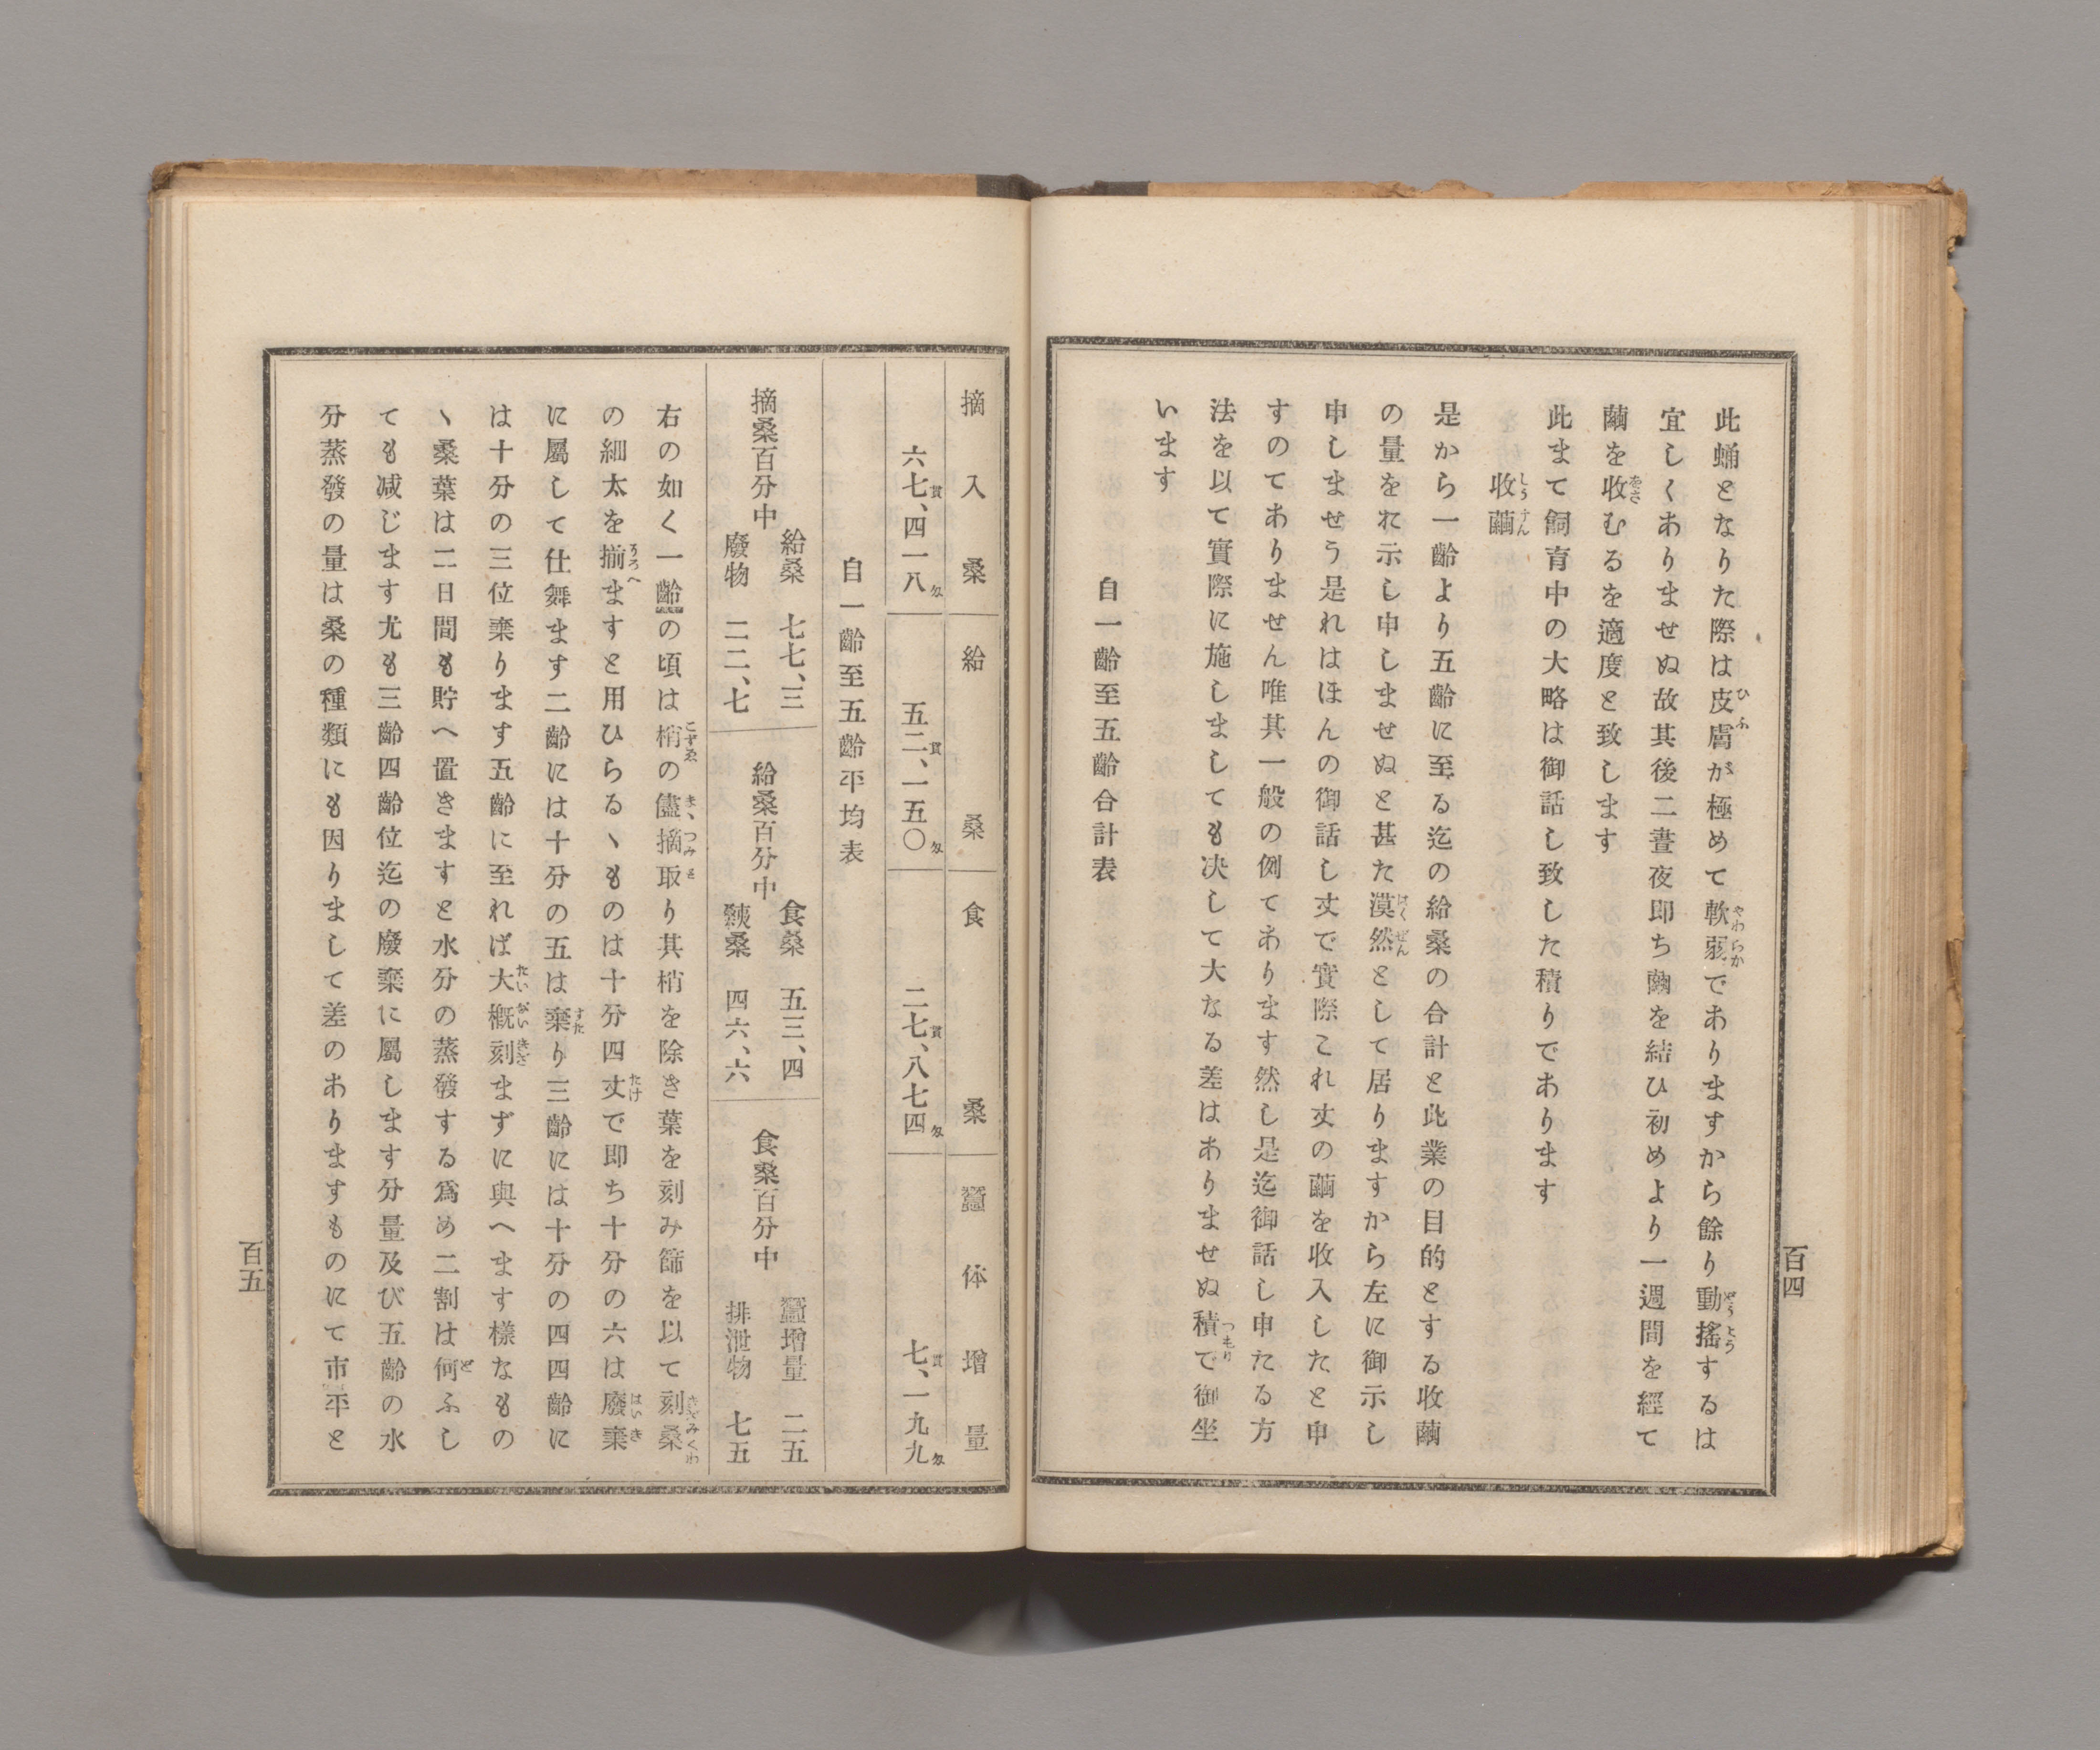 此蛹となりた際は皮膚が極めて軟弱でありますから餘り動搖するは
宜しくありませぬ故其後二晝夜即ち繭を結ひ初めより一週間を經て
繭を收むるを適度と致します
此まて飼育中の大略は御話し致した積りであります
收繭
是から一齡より五齡に至る迄の給桑の合計と此業の目的とする收繭
の量をれ示し申しませぬと甚た漠然として居りますから左に御示し
申しませう是れはほんの御話し丈で實際これ丈の繭を收入したと申
すのてありません唯其一般の例てあります然し是迄御話し申たる方
法を以て實際に施しましても决して大なる差はありませぬ積で御坐
います
自一齡至五齡合計表
百四
摘入桑 給桑 食桑 蠶体增量
六七貫、四一八匁 五二貫、一五〇匁 二七貫、八七四匁 七貫、一九九匁
自一齡至五齡平均表
摘桑百分中 給桑 七七、三 廢物 二二、七
給桑百分中 食桑 五三、四 殘桑 四六、六
食桑百分中 蠶增量 二五 排泄物 七五
右の如く一齡の頃は梢の儘摘取り其梢を除き葉を刻み篩を以て刻桑
の細太を揃ますと用ひらるヽものは十分四丈で即ち十分の六は廢棄
に屬して仕舞ます二齡には十分の五は棄り三齡には十分の四四齡に
は十分の三位棄ります五齡に至れば大概刻まずに與へます樣なもの
ヽ桑葉は二日間も貯へ置きますと水分の蒸發する爲め二割は何ふし
ても减じます尤も三齡四齡位迄の廢棄に屬します分量及び五齡の水
分蒸發の量は桑の種類にも因りまして差のありますものにて市平と
百五